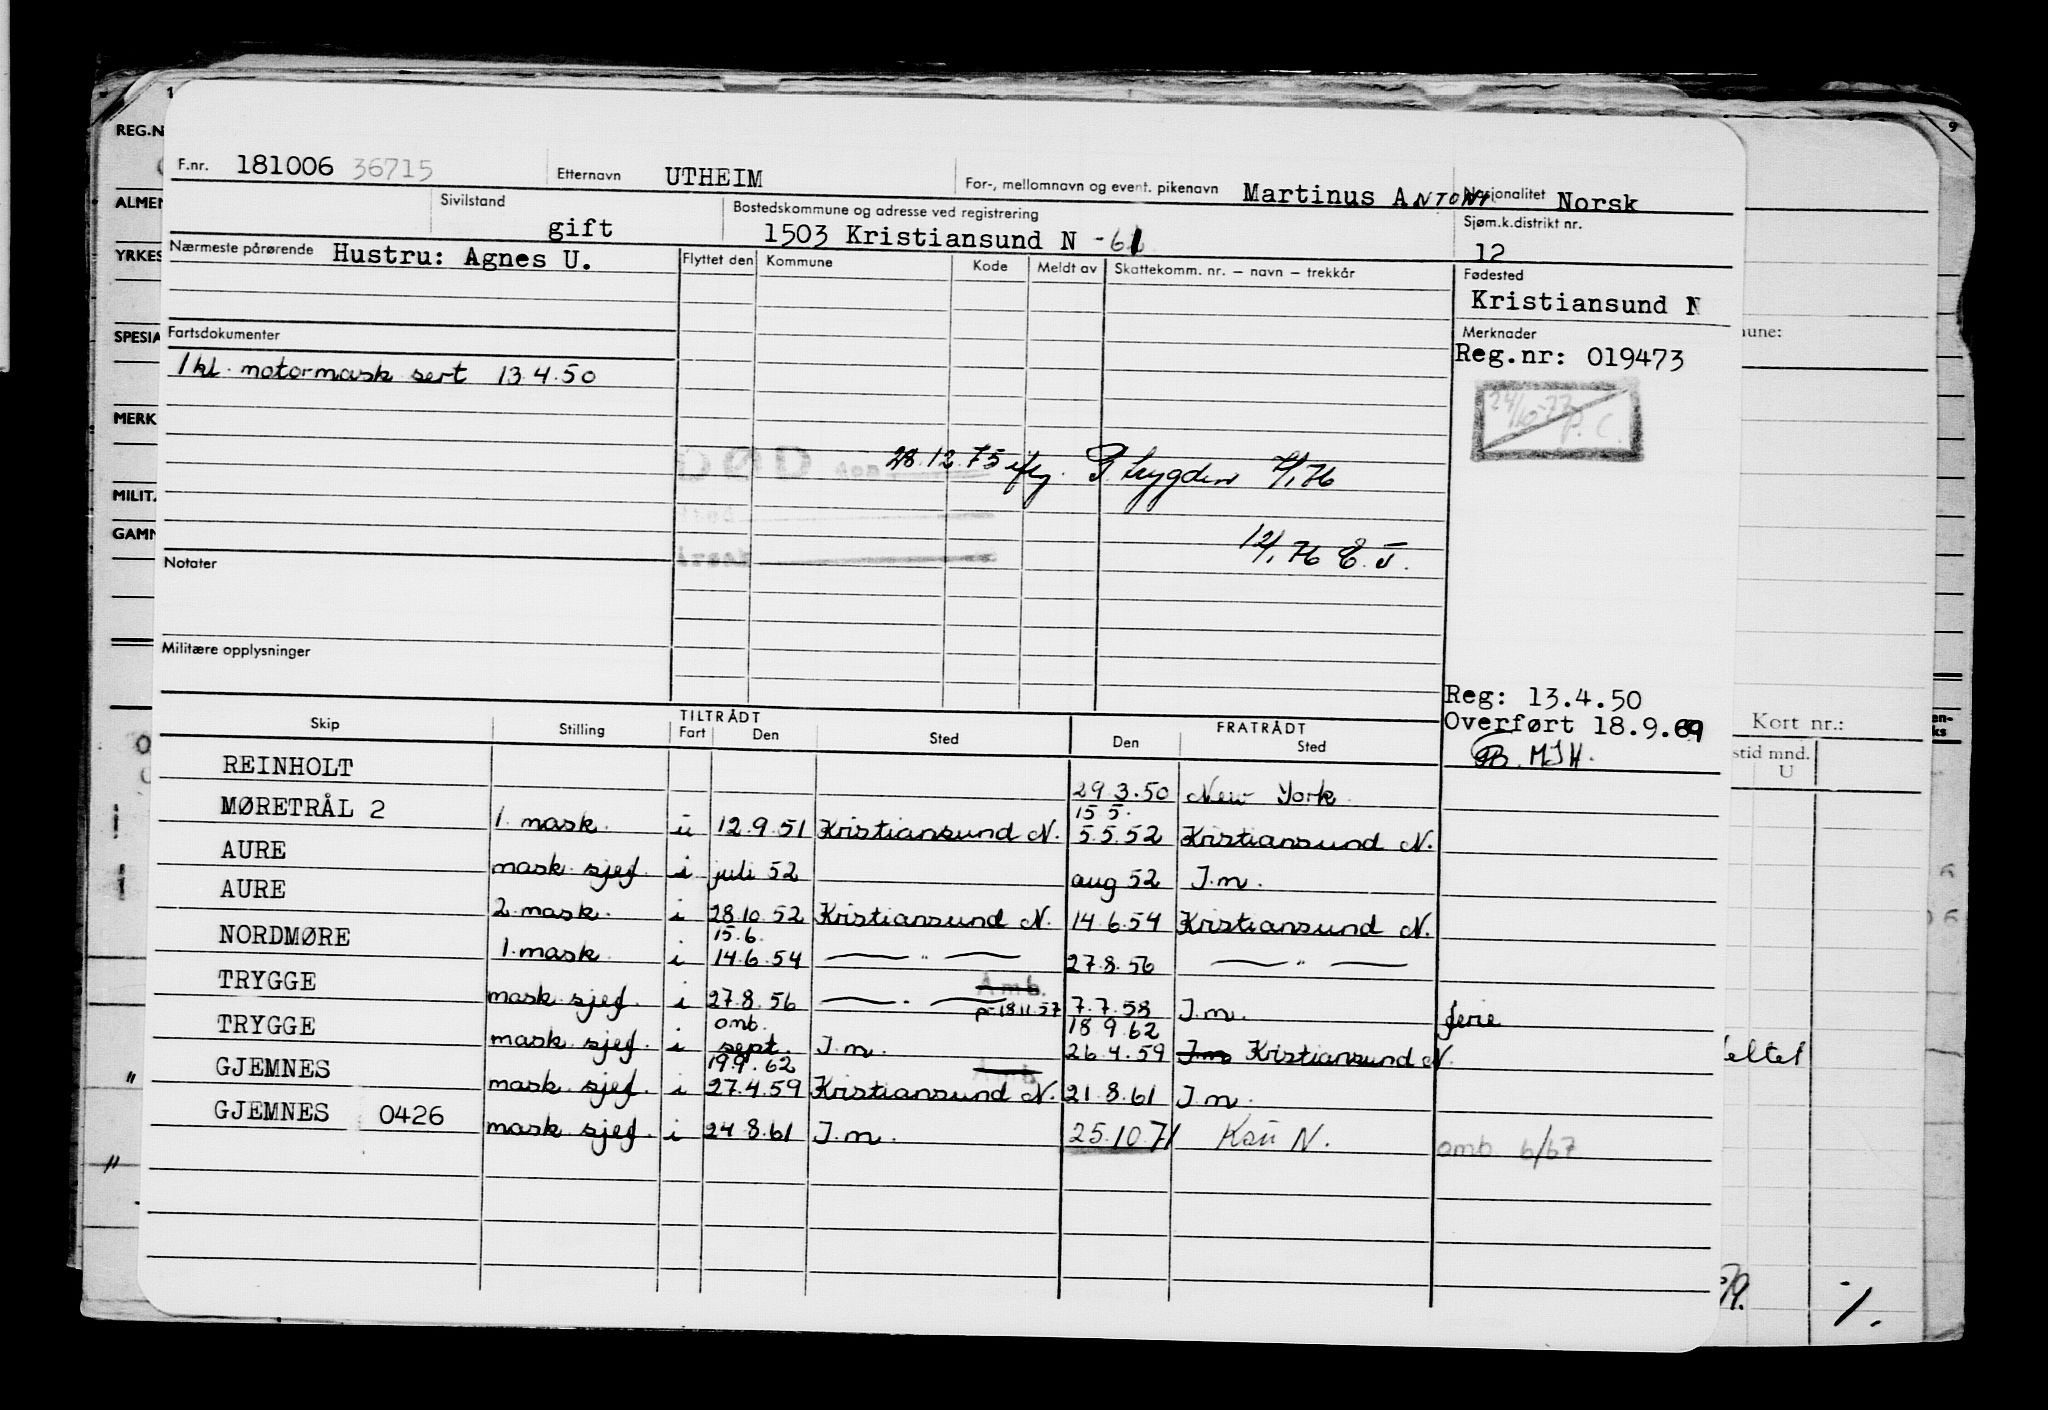 F.nr. 181006 36715 Etternavn UTHEIM For-, mellomnavn og event. pikenavn Martinus ANTON Nasjonalitet Norsk
Sivilstand gift Bostedskommune og adresse ved registrering 1503 Kristiansund N -61 Sjøm.k.distrikt nr. 12
Nærmeste pårørende Hustru: Agnes U. Flyttet den Kommune Kode Meldt av Skattekomm. nr. – navn – trekkår Fødested
Kristiansund N
Fartsdokumenter Merknader
Reg.nr: 019473
1 kl. motormask sert 13.4.50
24/10-77 P.C.
28.12.75 iflg. P. trygden /1 76
12/1 76 E.J.
Notater
Militære opplysninger
Reg: 13.4.50
Overført 18.9.69
MJH.
Skip Stilling TILTRÅDT Fart Den Sted FRATRÅDT Den Sted
REINHOLT 29.3.50 New York
MØRETRÅL 2 1. mask. u 12.9.51 Kristiansund N. 15.5. 5.5.52 Kristiansund N.
AURE mask.sjef. i juli 52 aug 52 I.m.
AURE 2. mask. i 28.10.52 Kristiansund N. 14.6.54 Kristiansund N.
NORDMØRE 1. mask. i 15.6. 14.6.54 — " — 27.8.56 — " —
TRYGGE mask.sjef. i 27.8.56 — " — Amb. på 18.11.57 7.7.58 I.m. ferie
TRYGGE mask.sjef. i omb. sept. I.m. 18.9.62 26.4.59 I.m. Kristiansund N.
GJEMNES mask.sjef. i 19.9.62 27.4.59 Kristiansund N. 21.8.61 I.m.
GJEMNES 0426 mask.sjef. i 24.8.61 I.m. 25.10.71 Ksu N. omb 6/67
REG.N
ALMEN
YRKES
SPESIA
MERK
MILIT.
GAMN
mune:
Kort nr.:
stid mnd.
U